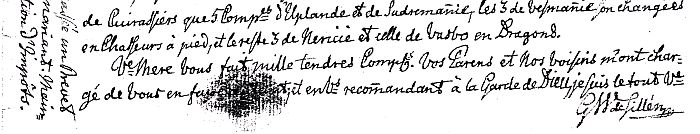 de Cuirassiers que 5 Comp.es d'Uplande et de Sudremanie, les 3 de Vesmanie on changées
en Chasseurs à pied, et le reste 3 de Nericie et celle de Vasbo en Dragons.
V.e Mere vous fait mille tendres Comp.s. Vos Parens et Nos Voisins m'ont char-
gé de vous en faire et en V.s recomandant à la Garde de Dieu, je suis le tout V.e
G. W. de Gillén
un Brevet
tion d'Impôts.